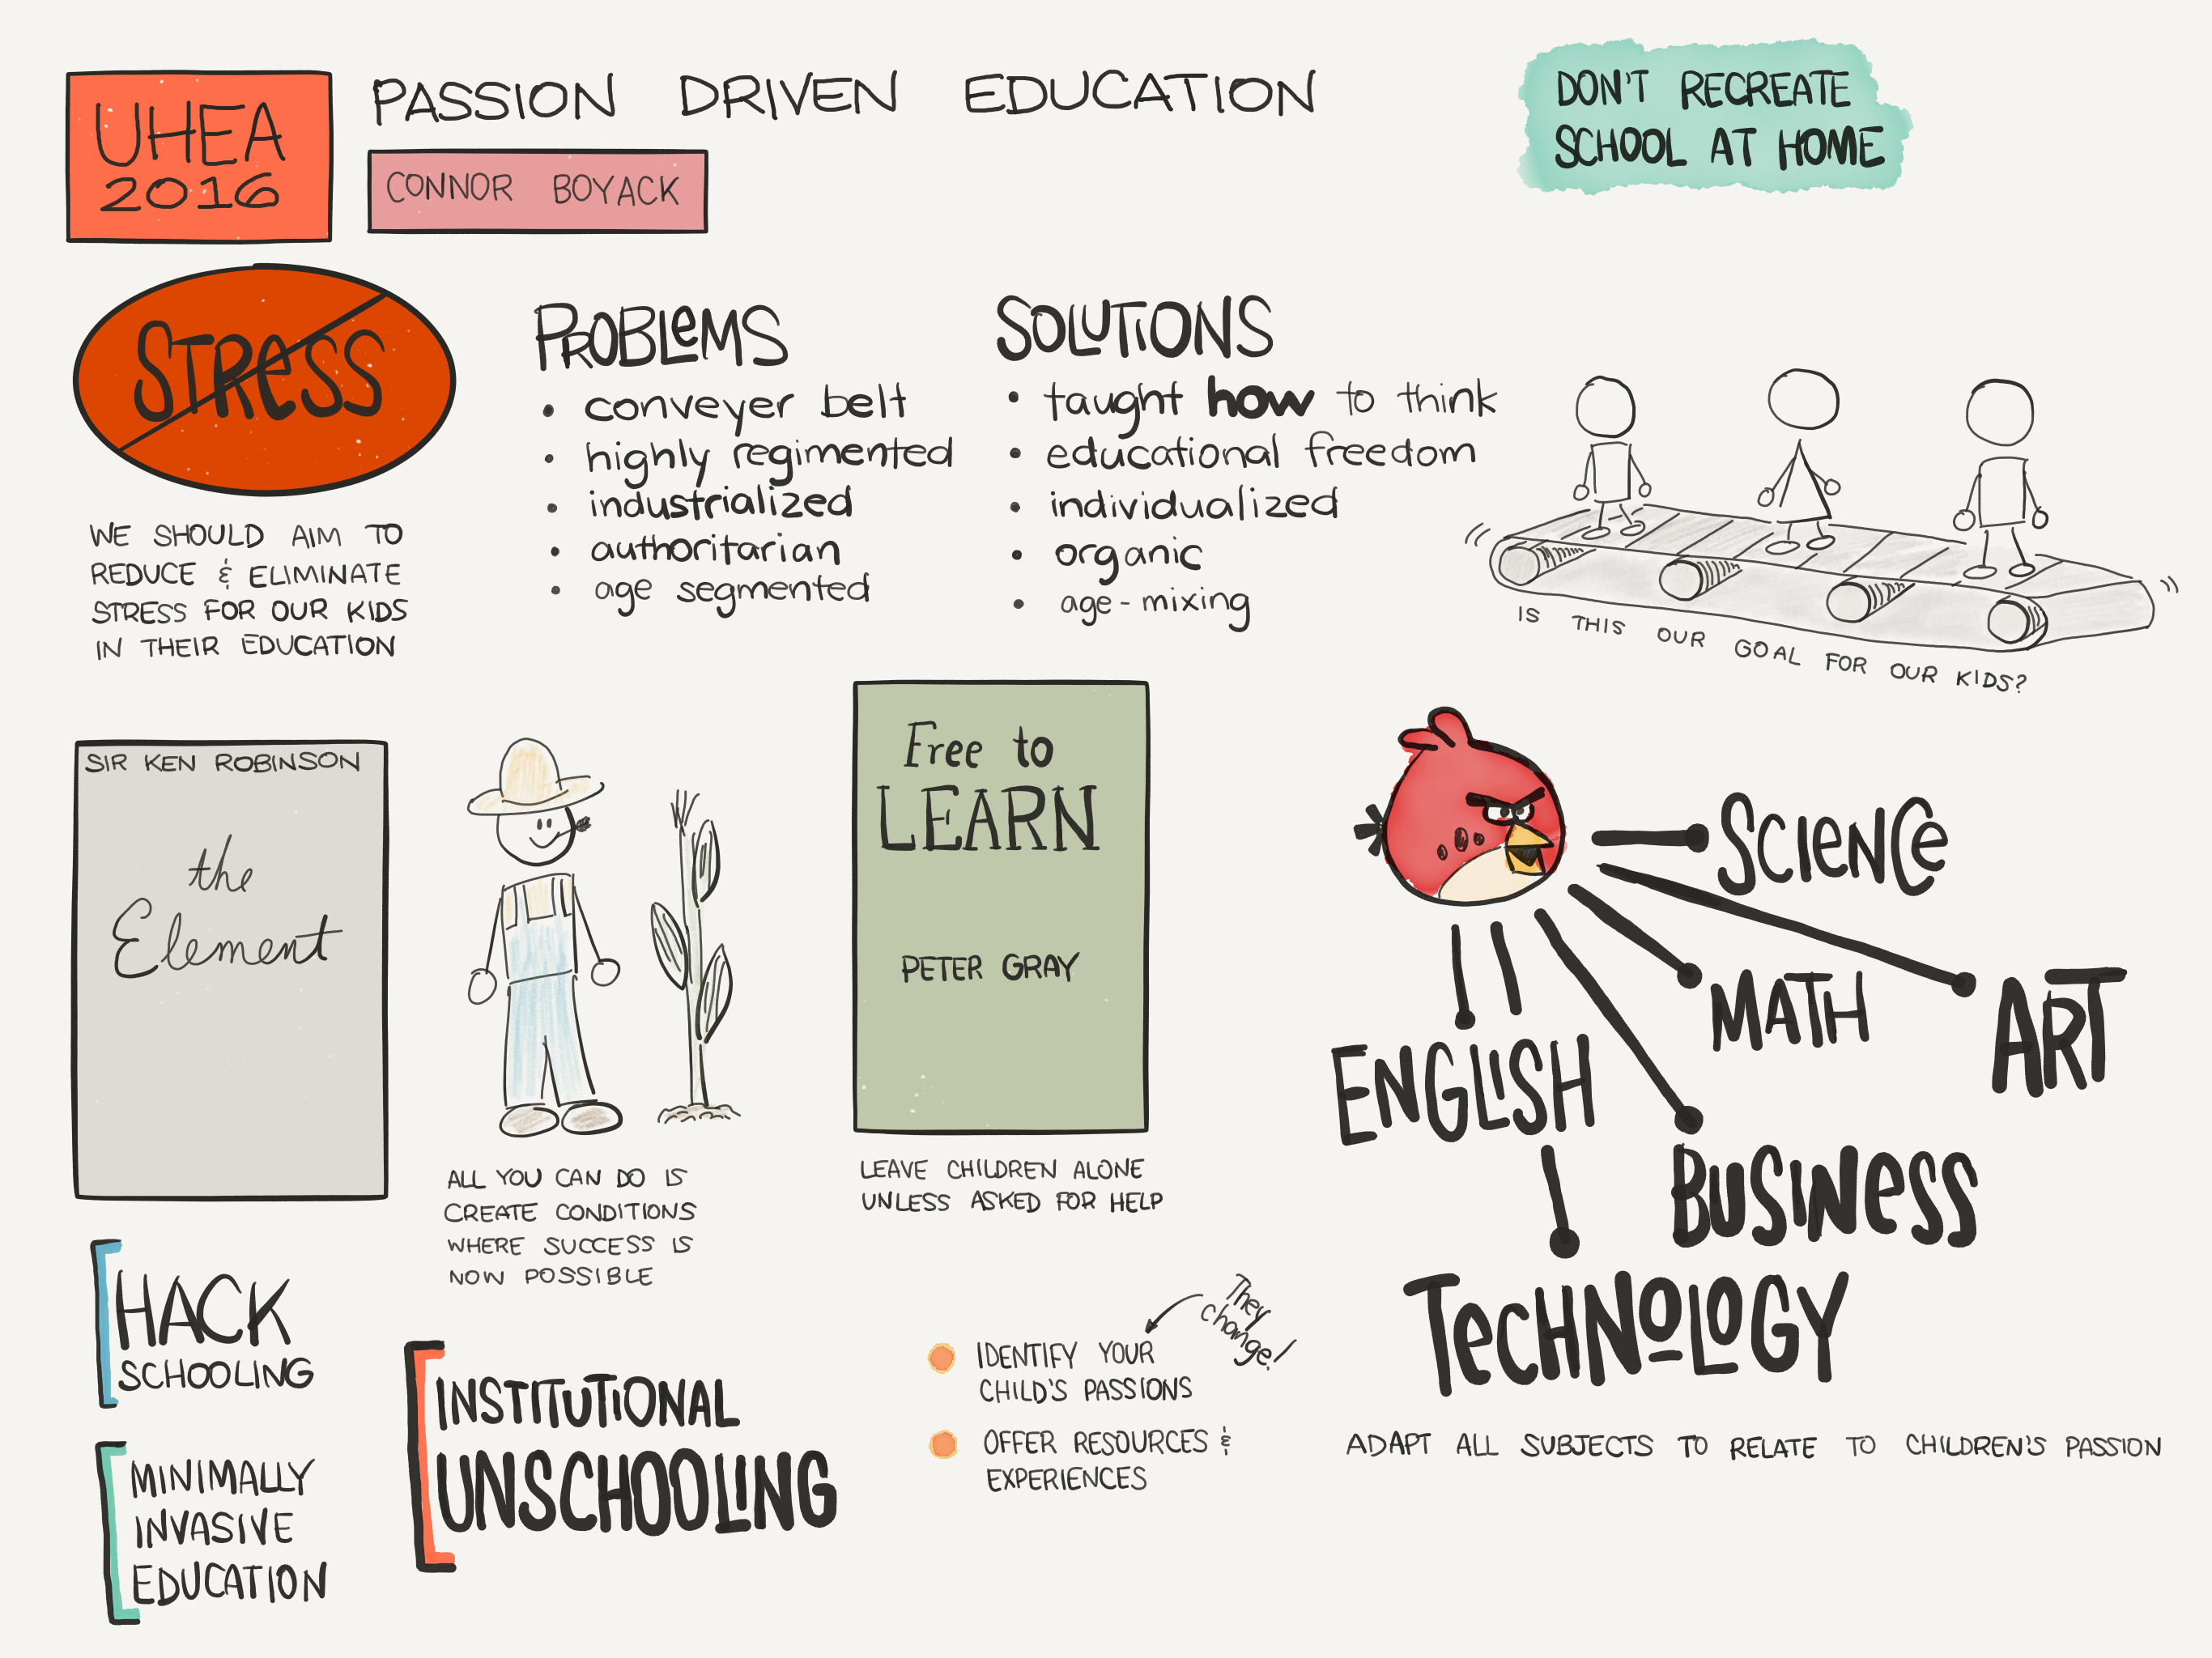 UHEA
2016
PASSION DRIVEN EDUCATION
CONNOR BOYACK
DON'T RECREATE
SCHOOL AT HOME
STRESS
WE SHOULD AIM TO
REDUCE & ELIMINATE
STRESS FOR OUR KIDS
IN THEIR EDUCATION
PROBLEMS
• conveyer belt
• highly regimented
• industrialized
• authoritarian
• age segmented
SOLUTIONS
• taught how to think
• educational freedom
• individualized
• organic
• age-mixing
IS THIS OUR GOAL FOR OUR KIDS?
SIR KEN ROBINSON
the
Element
ALL YOU CAN DO IS
CREATE CONDITIONS
WHERE SUCCESS IS
NOW POSSIBLE
Free to
LEARN
PETER GRAY
LEAVE CHILDREN ALONE
UNLESS ASKED FOR HELP
SCIENCE
MATH
ART
ENGLISH
BUSINESS
TECHNOLOGY
ADAPT ALL SUBJECTS TO RELATE TO CHILDREN'S PASSION
HACK
SCHOOLING
MINIMALLY
INVASIVE
EDUCATION
INSTITUTIONAL
UNSCHOOLING
They
change!
IDENTIFY YOUR
CHILD'S PASSIONS
OFFER RESOURCES &
EXPERIENCES